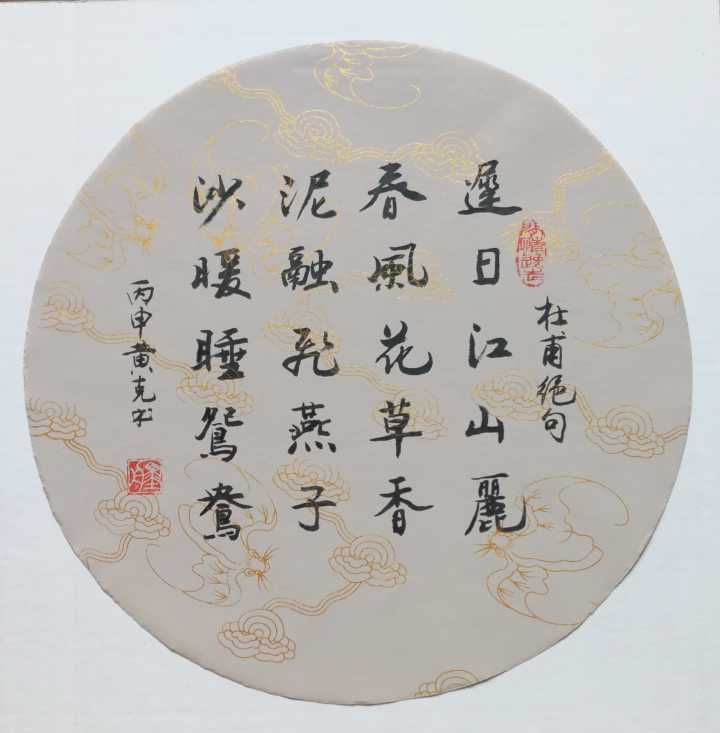 杜甫絕句
遲日江山麗
春風花草香
泥融飛燕子
沙暖睡鴛鴦
丙申黄克书